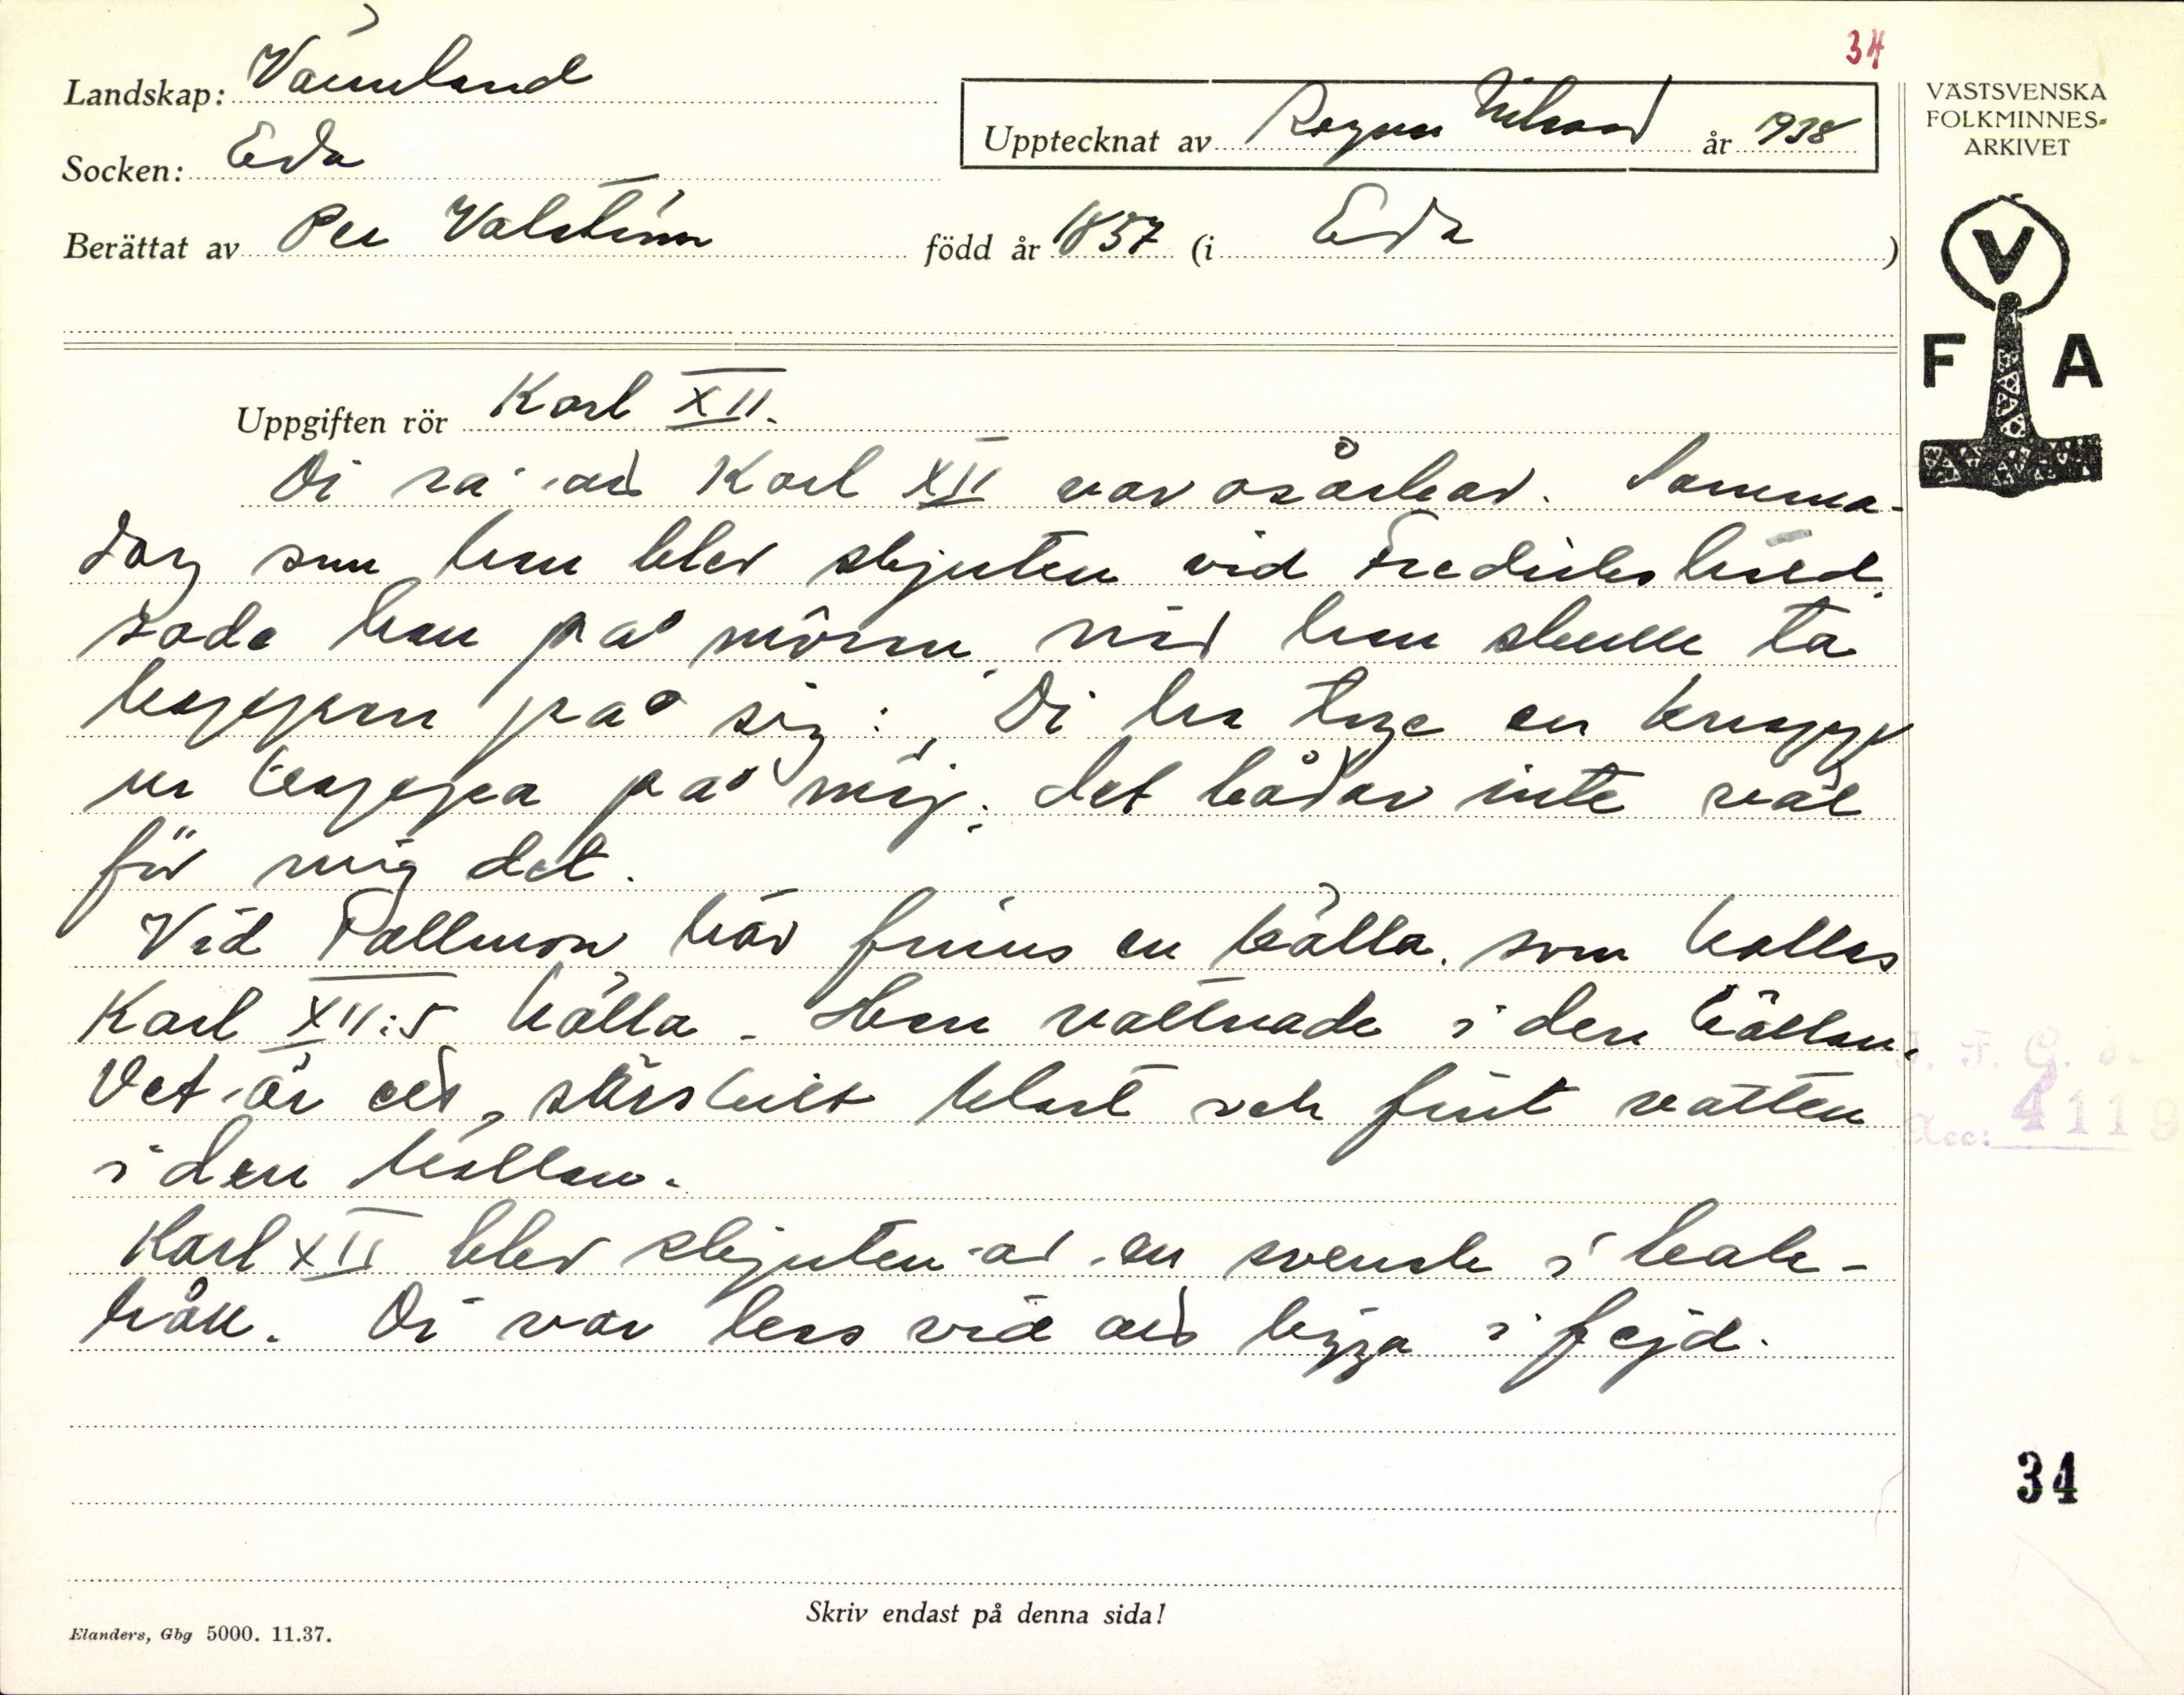 34
Landskap: Värmland
Upptecknat av Ragnar Nilsson år 1938
VÄSTSVENSKA
FOLKMINNES-
ARKIVET
Socken: Eda
Berättat av Per Valström född år 1857 (i Eda)
V
F A
Uppgiften rör Karl XII.
Di sa att Karl XII var osårbar. Samma
dag som han blev skjuten vid Fredrikshald,
sade han på môrnn, när han skulle ta
kappan på sig: Di har tage en knapp
ur kappa på mig; det bådar inte väl
för mig det.
Vid Tallmon här finns en källa som kallas
Karl XII:s källa. Han vattnade i den källan.
Det är ett särskilt klart och fint vatten
i den källan.
Karl XII blev skjuten av en svensk i bak-
håll. Di var less vid att ligga i fejd.
J. F. G.
Acc: 4119
34
Skriv endast på denna sida!
Elanders, Gbg 5000. 11.37.